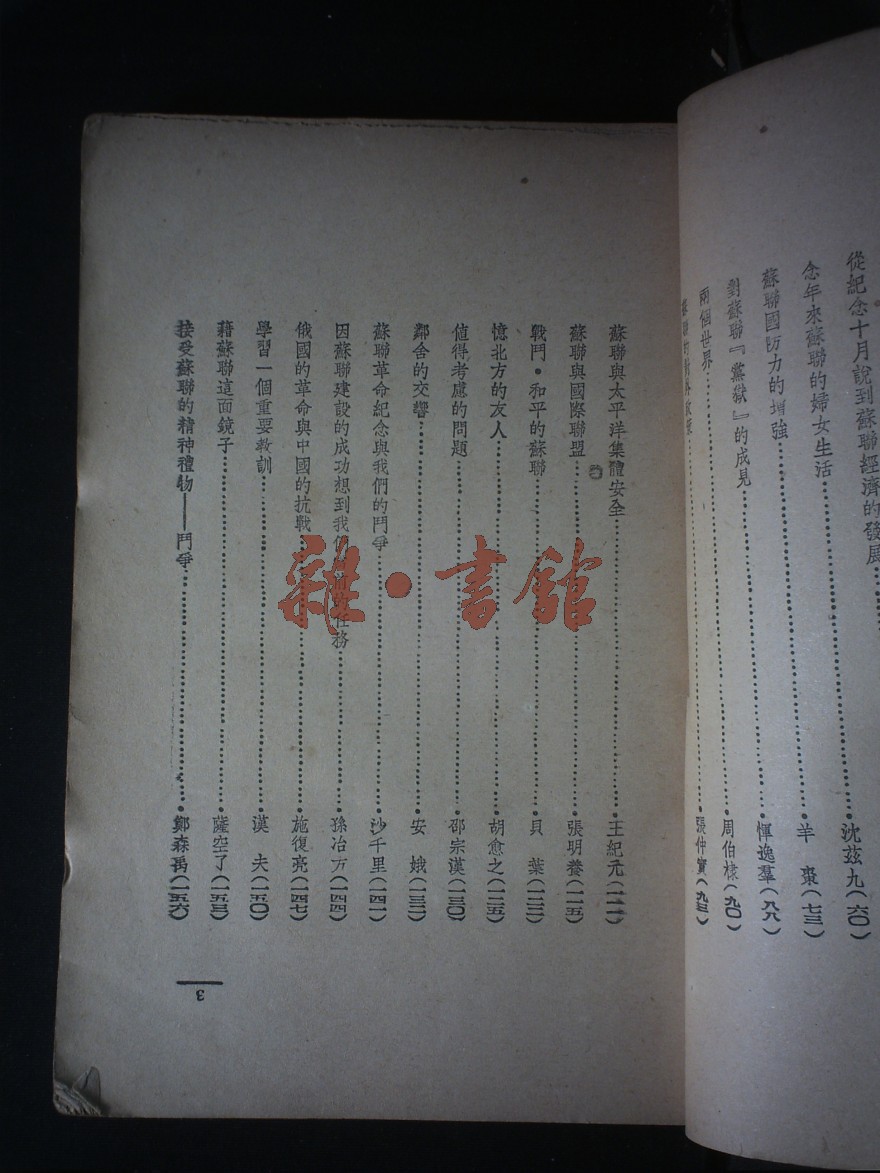 從紀念十月說到蘇聯經濟的發展……沈茲九(六〇)
念年來蘇聯的婦女生活……羊 棗(七三)
蘇聯國防力的增強……惲逸羣(八八)
對蘇聯『黨獄』的成見……周伯棣(九〇)
兩個世界……張仲實(九三)
蘇聯與太平洋集體安全……王紀元(一一一)
蘇聯與國際聯盟……張明養(一一五)
戰鬥·和平的蘇聯……貝 葉(一二二)
憶北方的友人……胡愈之(一二五)
值得考慮的問題……邵宗漢(一三〇)
鄰舍的交響……安 娥(一三二)
蘇聯革命紀念與我們的鬥爭……沙千里(一四一)
因蘇聯建設的成功想到我們當前的任務……孫冶方(一四四)
俄國的革命與中國的抗戰……施復亮(一四七)
學習一個重要教訓……漢 夫(一五〇)
藉蘇聯這面鏡子……薩空了(一五三)
接受蘇聯的精神禮物——鬥爭……鄭森禹(一五六)
3
雜·書館